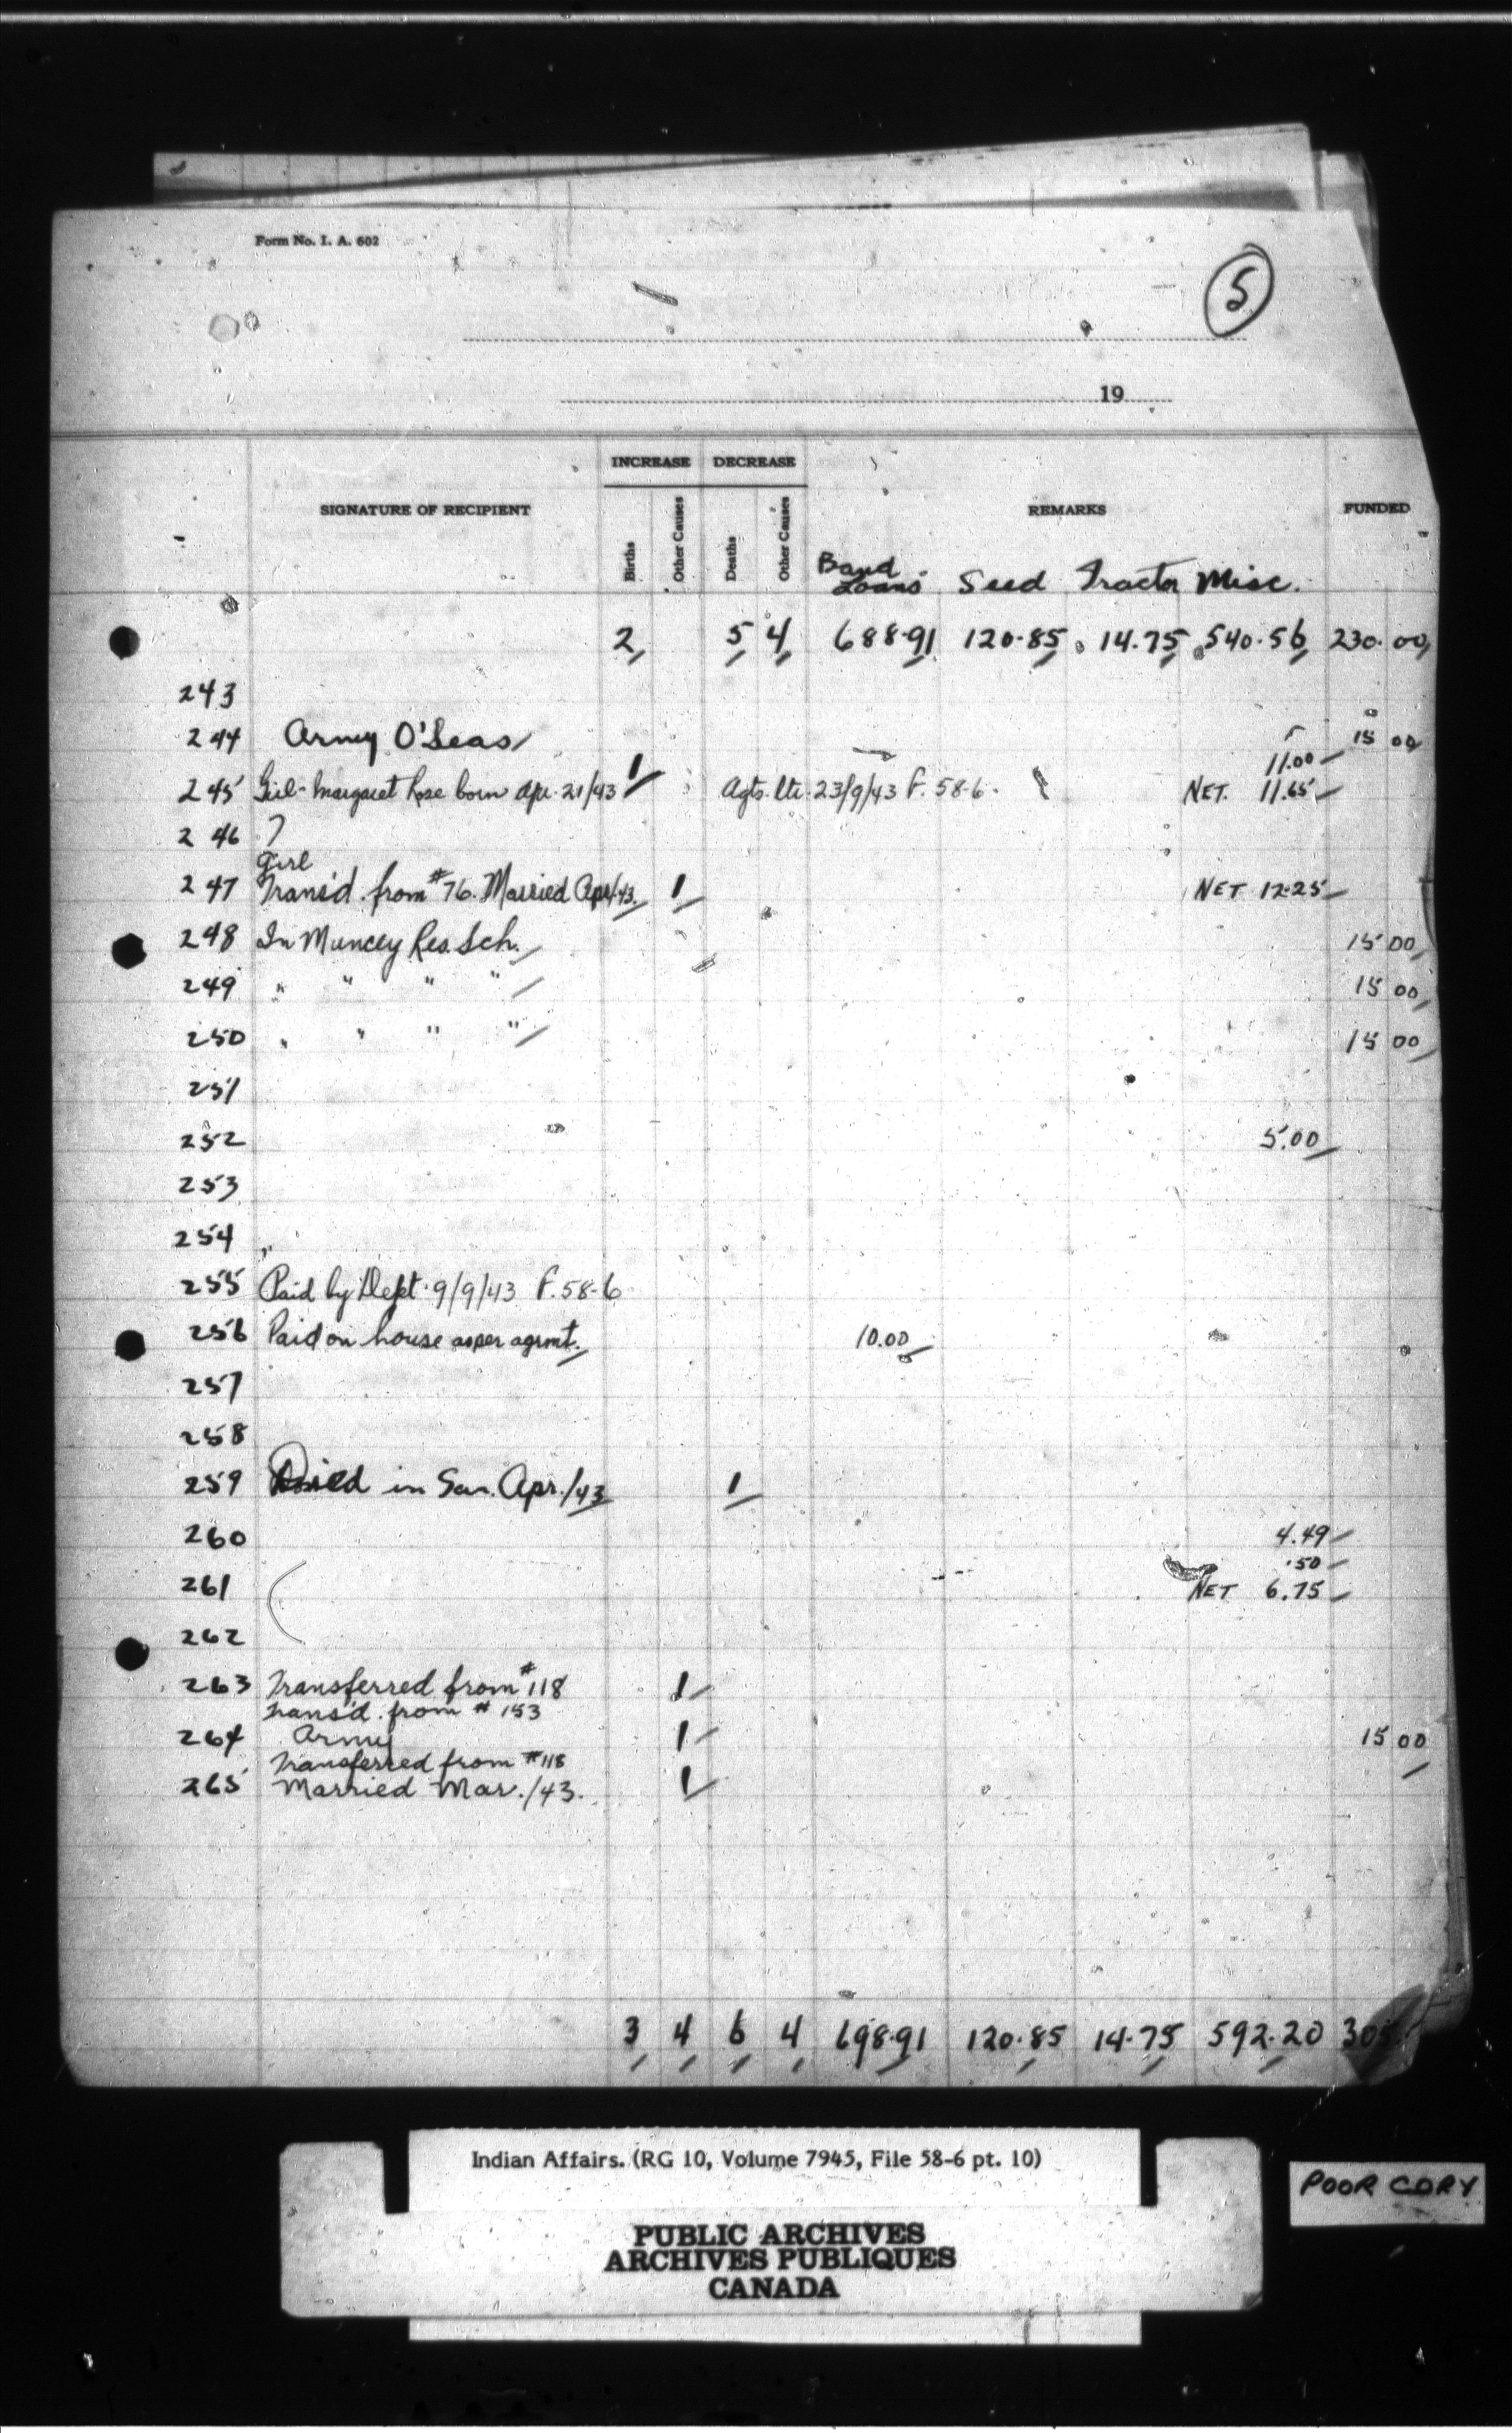 Form No. I. A. 602
5
19
INCREASE DECREASE
SIGNATURE OF RECIPIENT Births Other Causes Deaths Other Causes REMARKS FUNDED
Band Loans Seed Tractor Misc.
2 5 4 688.91 120.85 14.75 540.56 230.00
243
244 Army O'Seas 15 00
11.00
245 Girl - Margaret Rose born Apr. 21/43 1 Agts. ltr. 23/9/43 F. 58-6. NET. 11.65
246 ?
Girl
247 Trans'd. from #76. Married Apr/43. 1 NET 12.25
248 In Muncey Res. Sch. 15 00
249 " " " " 15 00
250 " " " " 15 00
251
252 5.00
253
254 "
255 Paid by Dept. 9/9/43 F. 58-6
256 Paid on house as per agrmt. 10.00
257
258
259 Died in San. Apr./43 1
260 4.49
.50
261 NET 6.75
262
263 Transferred from #118 1
Trans'd. from # 153
264 Army 1 15 00
Transferred from #118
265 Married Mar./43. 1
3 4 6 4 698.91 120.85 14.75 592.20 305
Indian Affairs. (RG 10, Volume 7945, File 58-6 pt. 10)
POOR COPY
PUBLIC ARCHIVES
ARCHIVES PUBLIQUES
CANADA